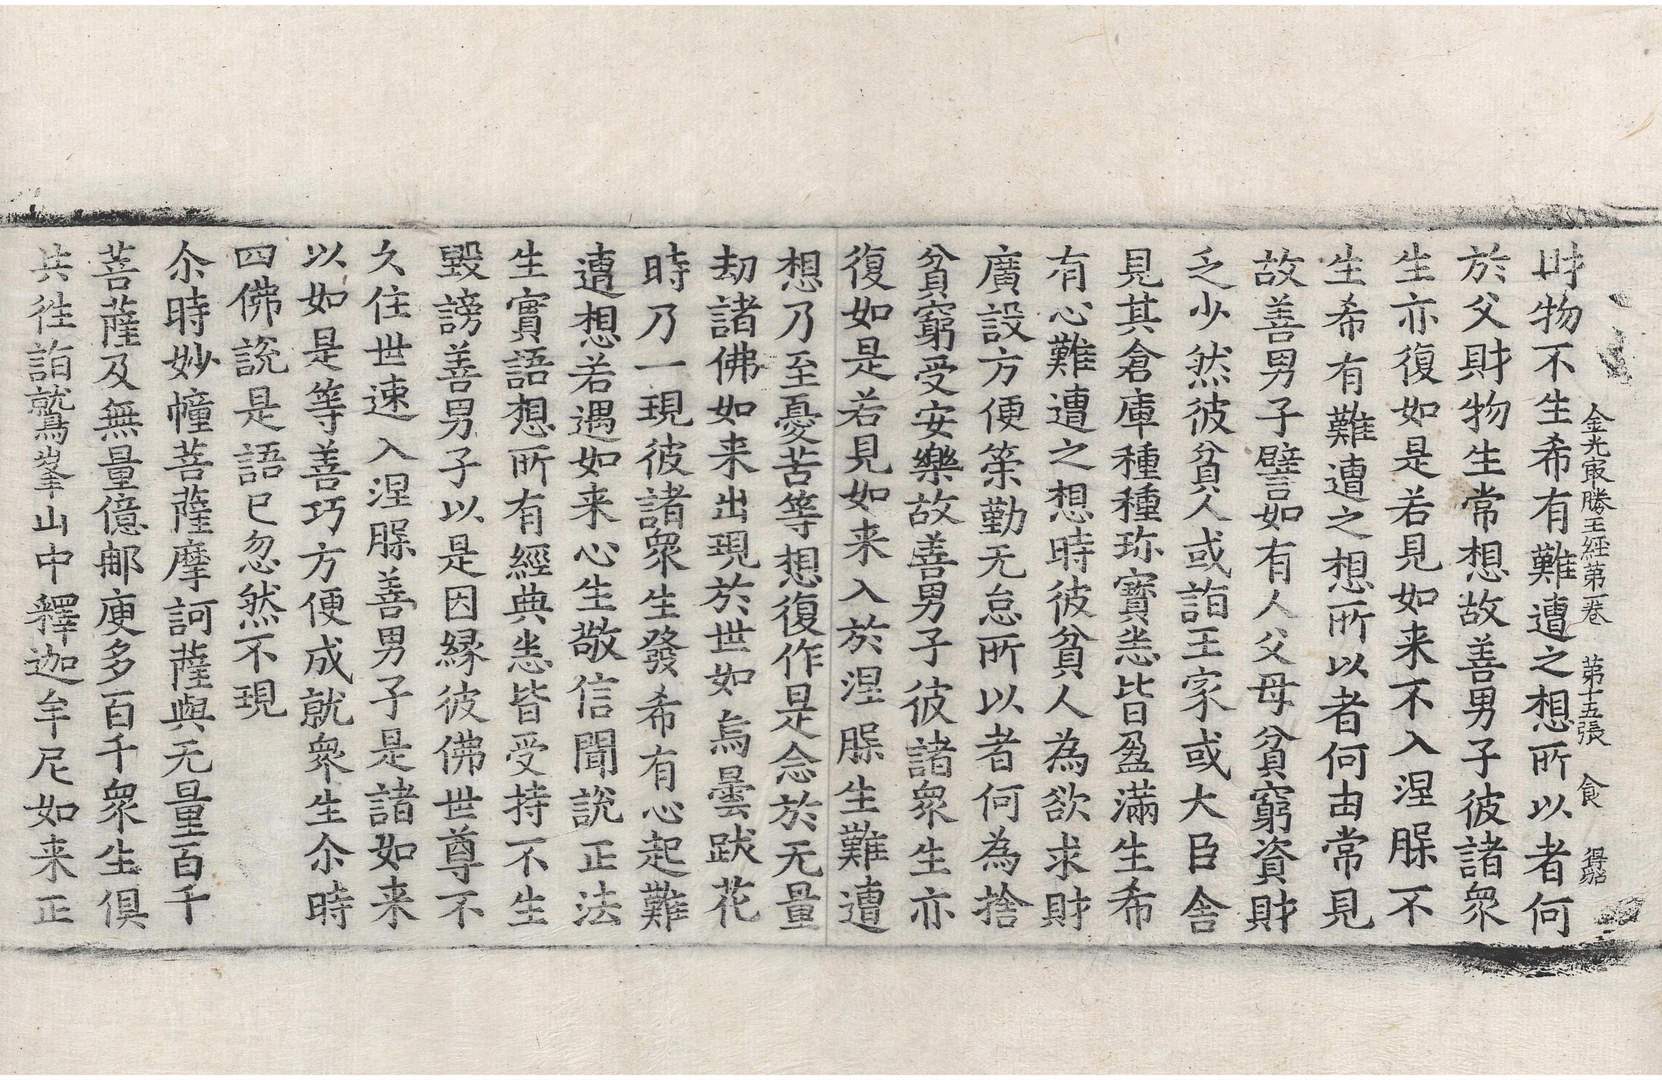 金光㝡勝王經第一卷　第十五張　食
財物不生希有難遭之想所以者何
於父財物生常想故善男子彼諸衆
生亦復如是若見如来不入涅槃不
生希有難遭之想所以者何由常見
故善男子譬如有人父母貧窮資財
乏少然彼貧人或詣王家或大臣舎
見其倉庫種種珎寶悉皆盈滿生希
有心難遭之想時彼貧人為欲求財
廣設方便策勤无怠所以者何為捨
貧窮受安樂故善男子彼諸衆生亦
復如是若見如来入於涅槃生難遭
想乃至憂苦等想復作是念於无量
劫諸佛如来出現於世如烏曇跋花
時乃一現彼諸衆生發希有心起難
遭想若遇如来心生敬信聞說正法
生實語想所有經典悉皆受持不生
毀謗善男子以是因縁彼佛世尊不
久住世速入涅槃善男子是諸如来
以如是等善巧方便成就衆生尒時
四佛說是語已忽然不現
尒時妙幢菩薩摩訶薩與无量百千
菩薩及無量億郍庾多百千衆生俱
共徃詣鷲峯山中釋迦牟尼如来正